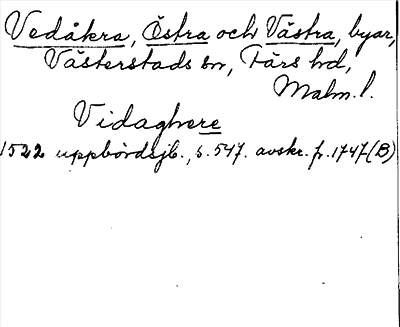 Vedåkra, Östra och Västra, byar,
Västerstads sn, Färs hd,
Malm. l.
Vidaghere
1522 uppbördsjb., s. 547. avskr. fr. 1747 (B)